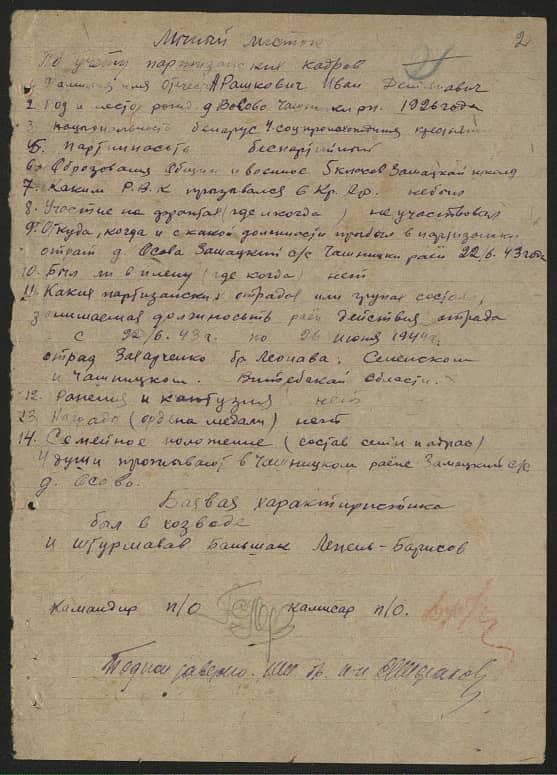 2
Личный листок
По учету партизанских кадров
1. Фамилия имя отчес Арашкович Иван
2. Год и место рожд. д Восово Чашн рн. 1926 года
3. национальность беларус 4. соц происхождения
5. Партийность беспартийный
6. Образования общии и военное 5 класов Замацкай школа
7. Каким Р.В.К призывался в Кр. Ар. небыл
8. Участие на фронтах (где и когда) неучаствовал
9. Откуда, когда и с какой должности прибыл в партизански
отрат д. Осова Замацкий с/с Чашницки раён 22/6. 43 года
10. Был ли в плену (где когда) нет
11. Каких партизанских отрадов или групах состоял,
занимаемая должность раён действия отрада
с 22/6. 43 г. по 26 июня 1944 г.
отрад Захарченко бр Леонава. Сененском
и Чашницком. Витебской области.
12. Ранения и кантузия нет
13. Награда (ордена медали) нет
14. Семейное положение (состав семи и адрас)
4 души проживают в Чашницком раёне Замацкий с/с
д. Осово.
Баявая характиристика
был в хозводе
и штурмавав Бальшак Лепель-Барисов
Камандир п/о камисар п/о.